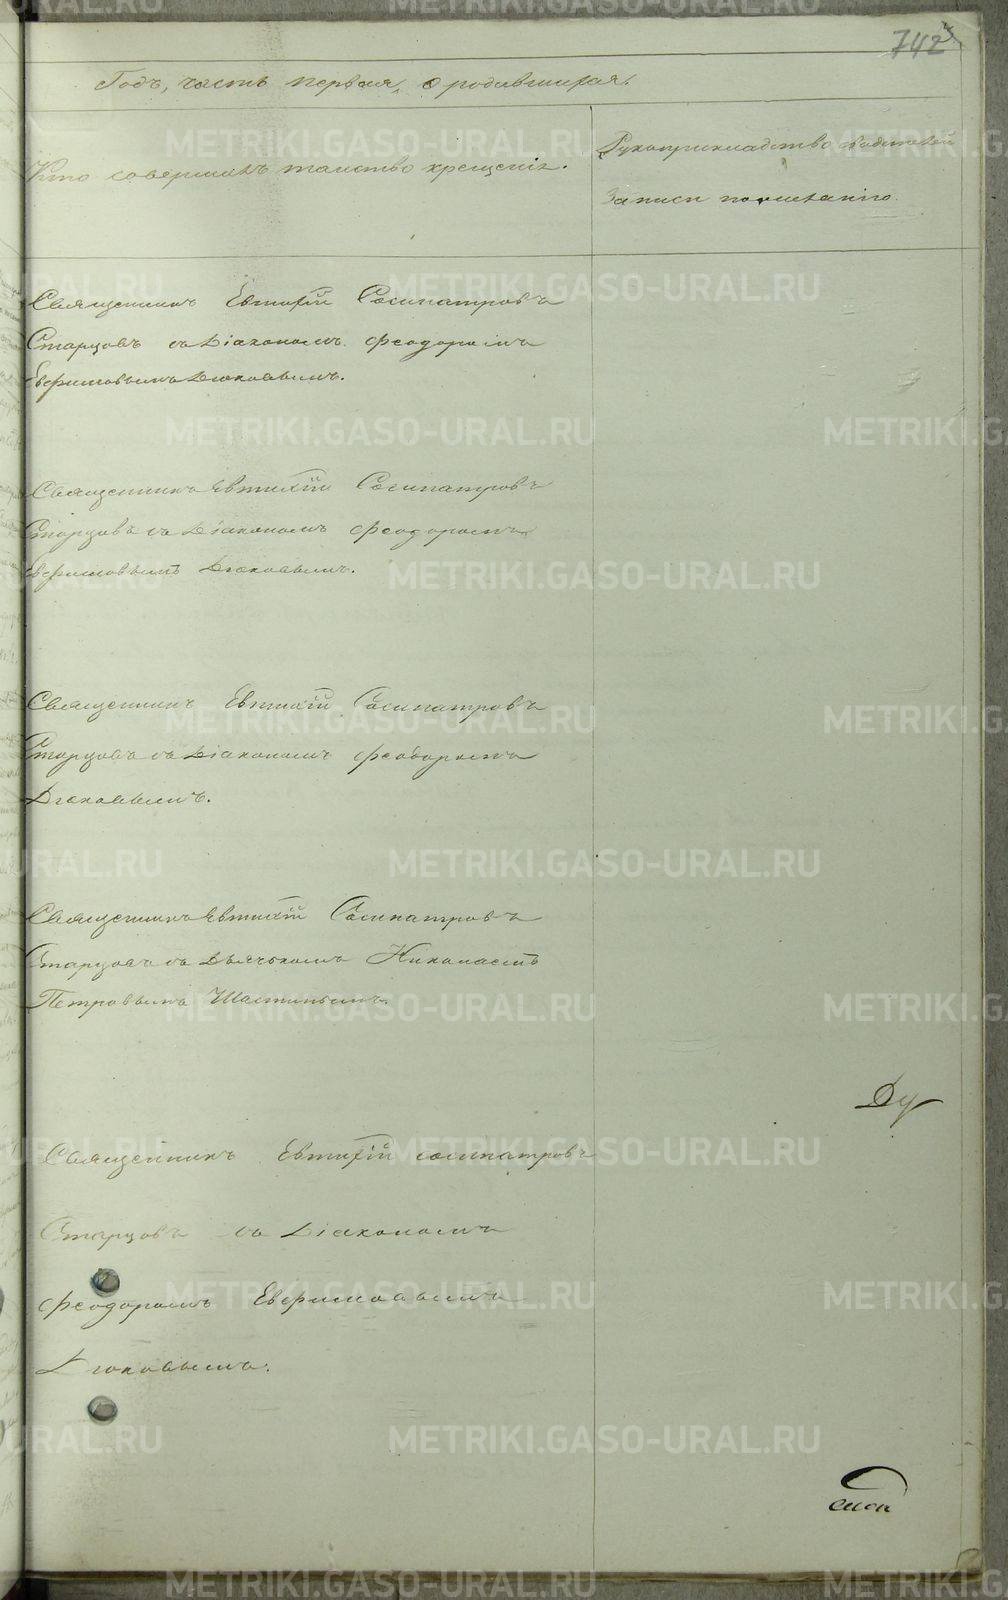 742
Годъ, часть первая, о родившихся.
Кто совершалъ таинство крещенія.
Рукоприкладство свидѣтелей
записи по желанію.
Священникъ Евтихій Сосипатровъ
Старцовъ съ Діакономъ Феодоромъ
Священникъ Евтихій Сосипатровъ
Старцовъ съ Діакономъ Феодоромъ
Священникъ Евтихій Сосипатровъ
Старцовъ съ Діакономъ Феодоромъ
Священникъ Евтихій Сосипатровъ
Старцовъ съ Дьячкомъ Николаемъ
Петровымъ
Ду
Священникъ Евтихій Сосипатровъ
Старцовъ съ Діакономъ
Феодоромъ
METRIKI.GASO-URAL.RU